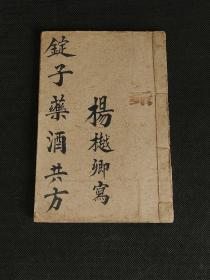 錠子藥酒共方
楊樾卿寫